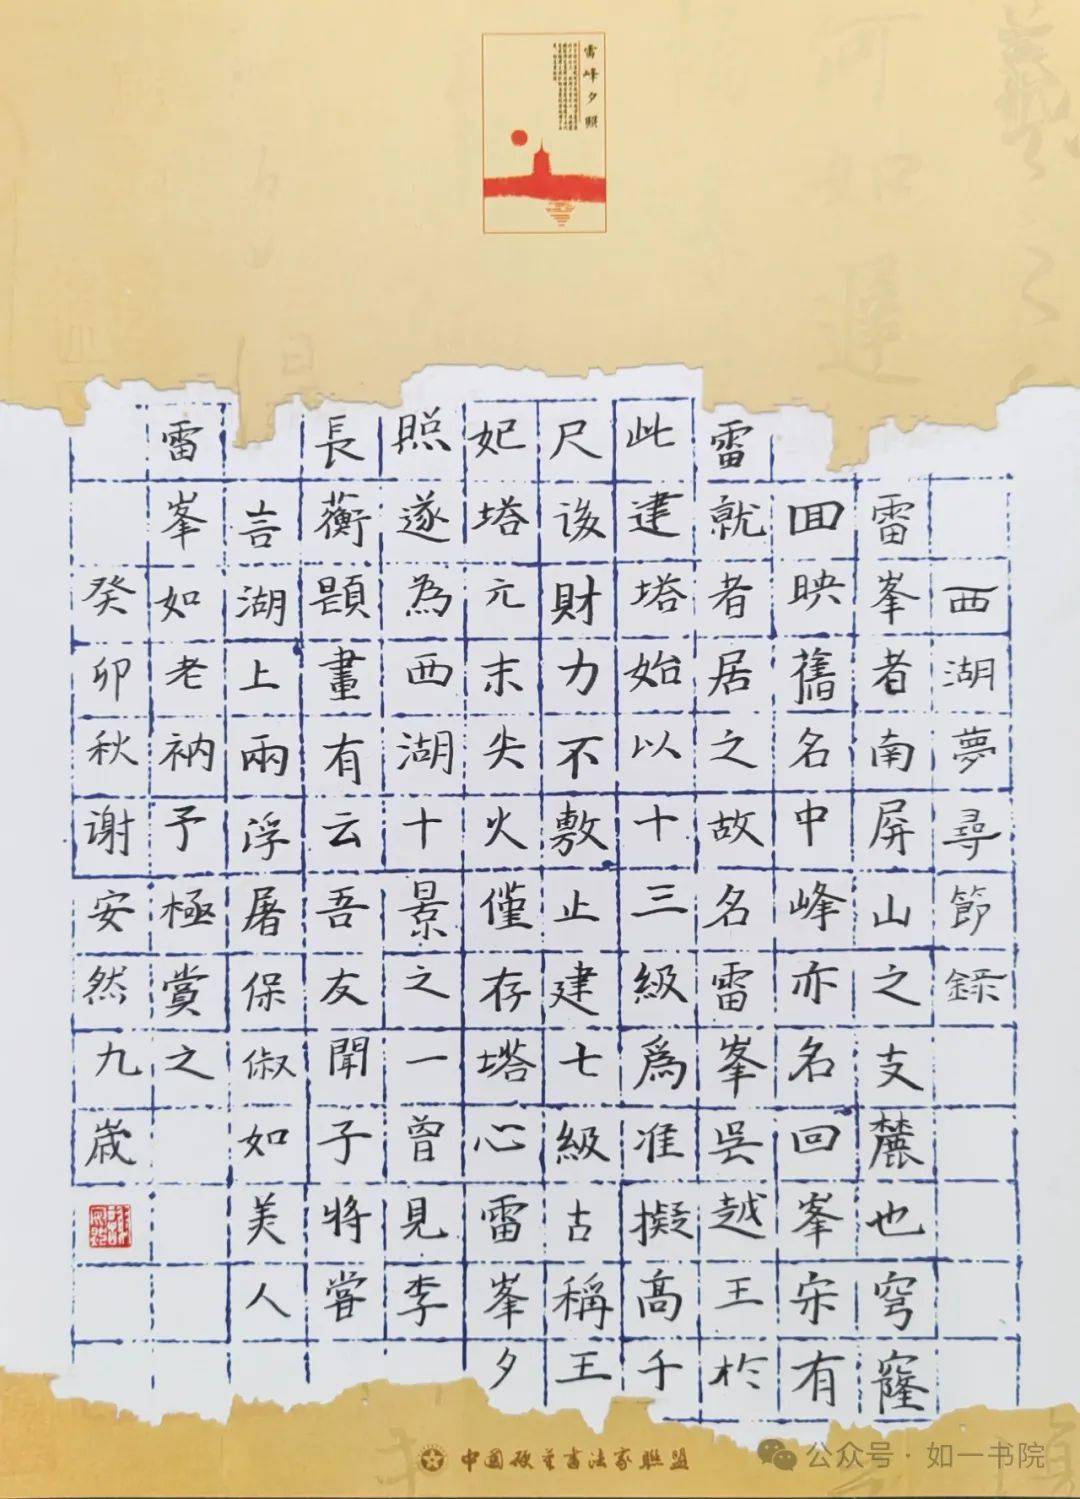 雷峰夕照
西湖夢尋節錄
雷峯者南屏山之支麓也穹窿
囬映舊名中峰亦名回峯宋有
雷就者居之故名雷峯吳越王於
此建塔始以十三級爲准擬高千
尺後財力不敷止建七級古稱王
妃塔元末失火僅存塔心雷峯夕
照遂為西湖十景之一曾見李
長蘅題畫有云吾友聞子將嘗
言湖上兩浮屠保俶如美人
雷峯如老衲予極賞之
癸卯秋谢安然九歲
中国硬筆書法家聯盟
公众号·如一书院